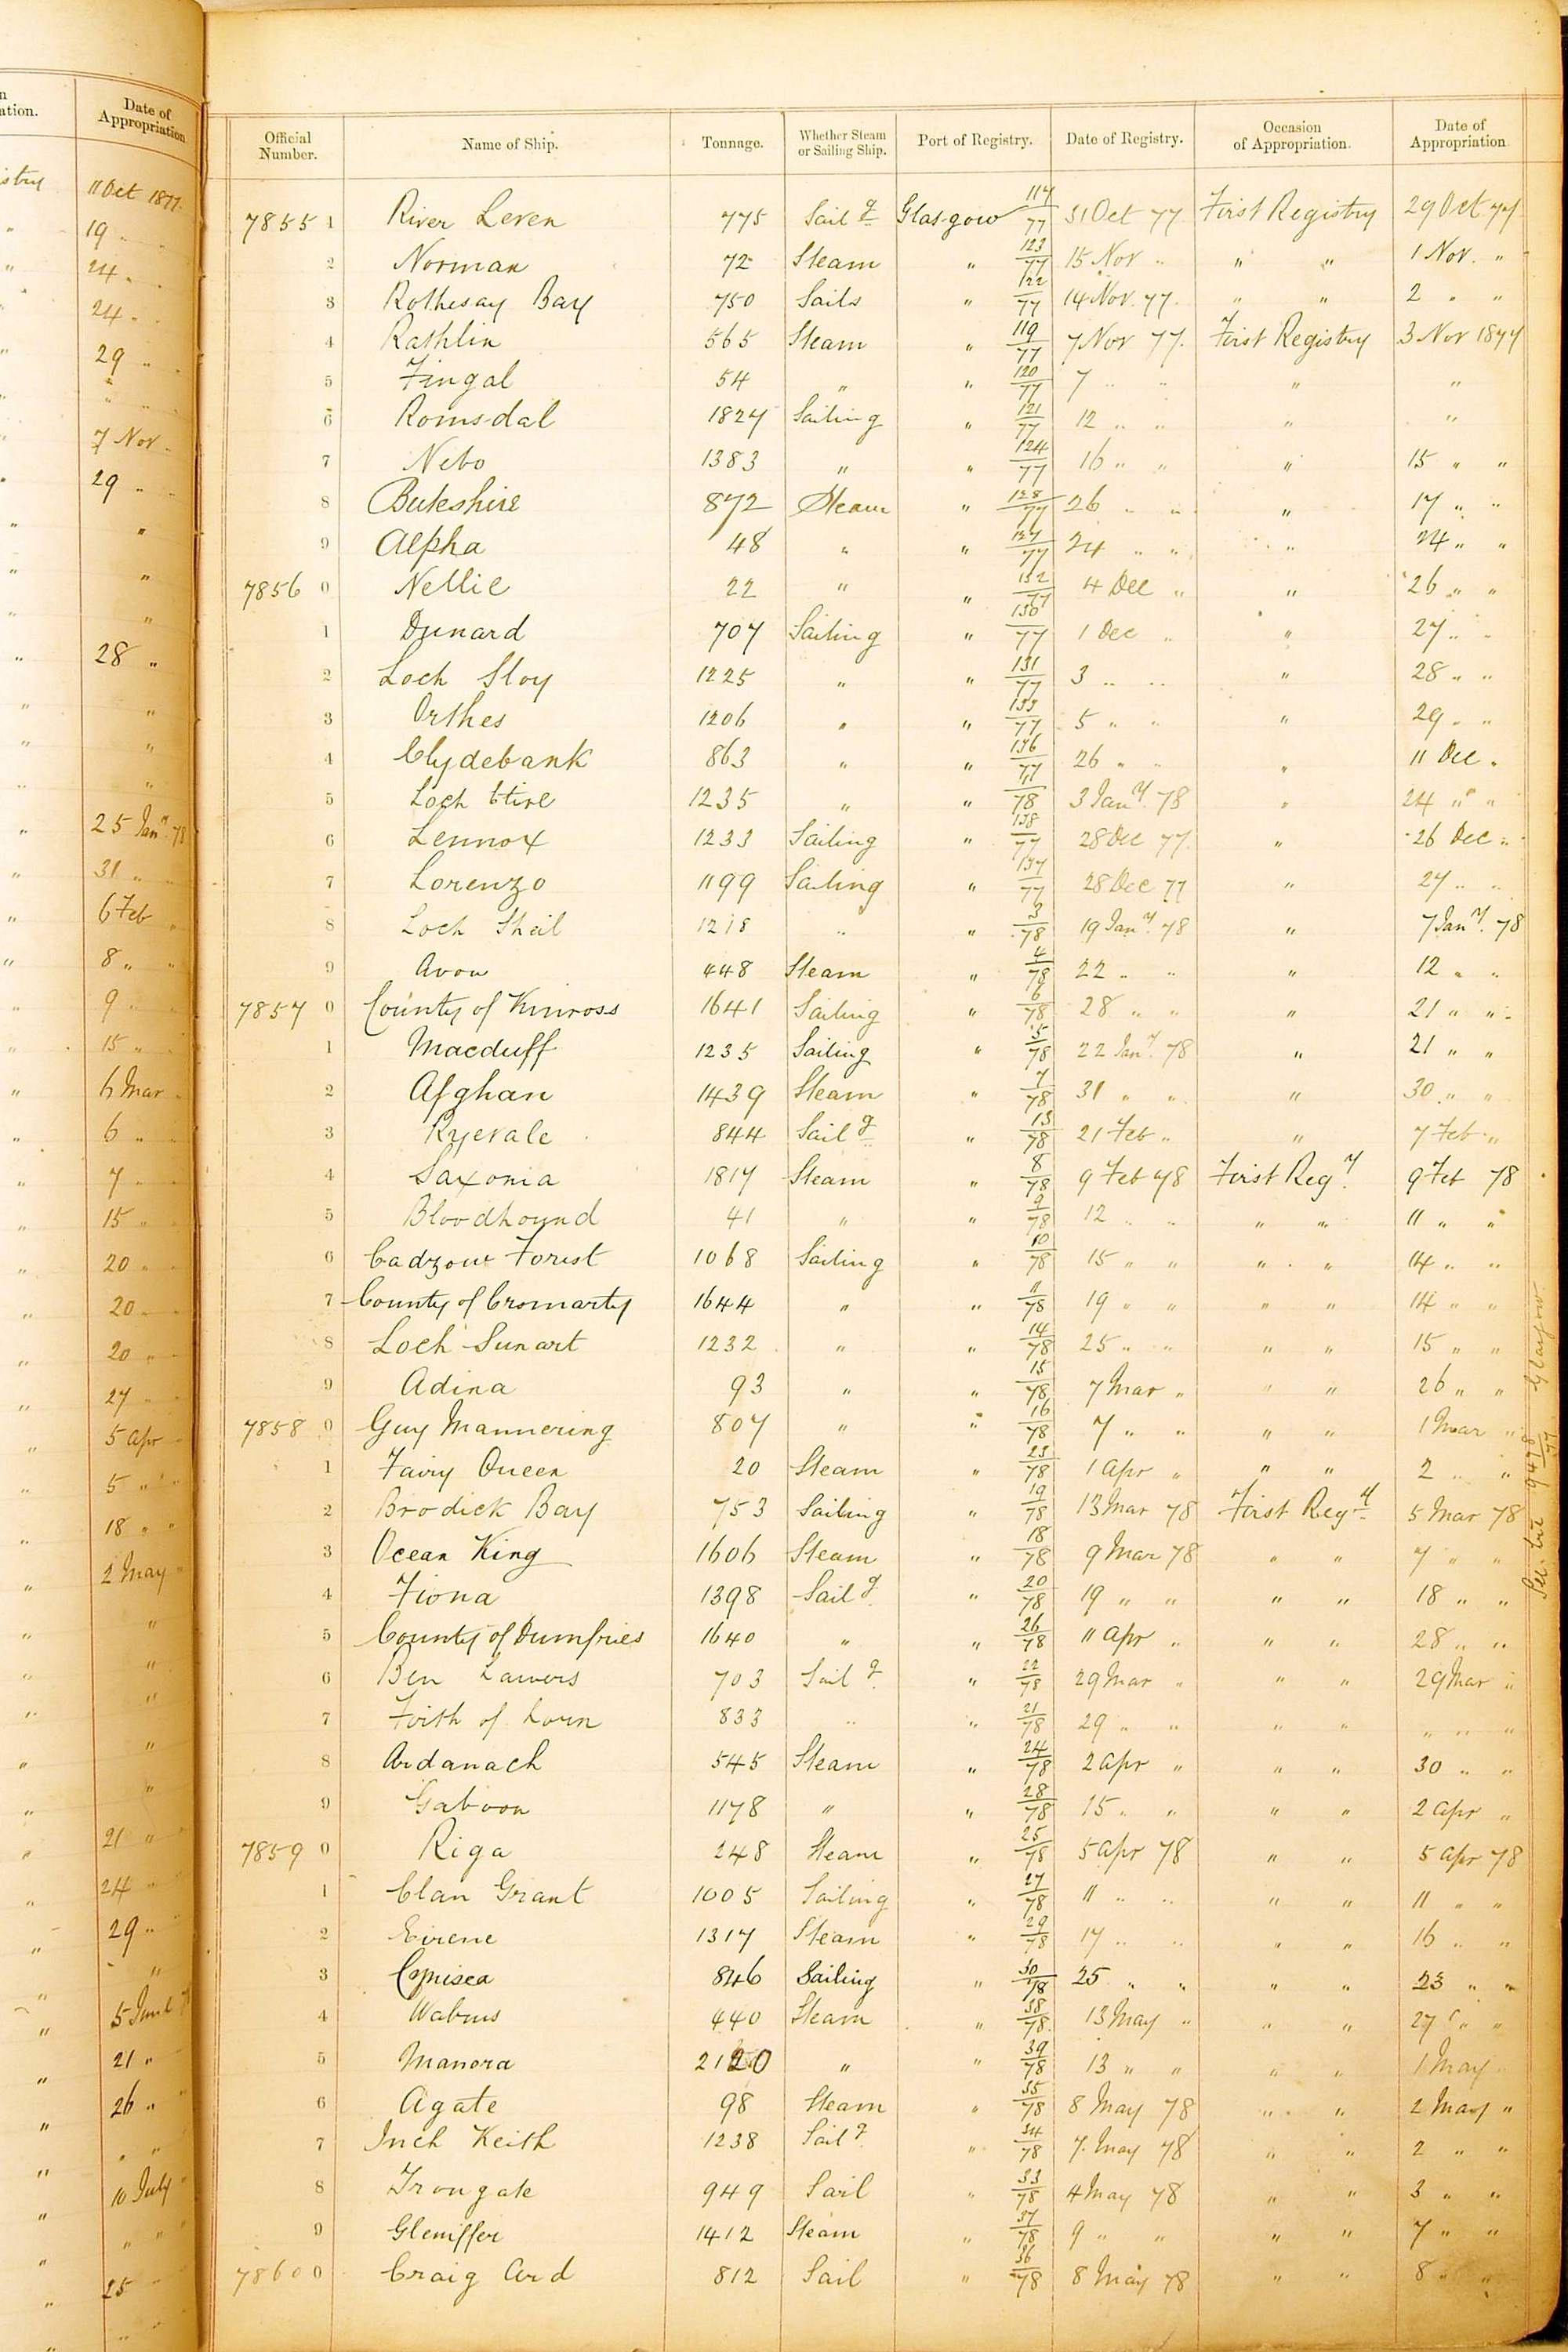 n
ation.
Date of
Appropriation
istry 11 Oct 1877.
" 19 " "
" 24 " "
" 24 " "
" 29 " "
" " "
" 7 Nov "
" 29 " "
" "
" "
" "
" 28 "
" "
" "
" "
" 25 Jany. 78
" 31 " "
" 6 Feb "
" 8 " "
" 9 " "
" 15 " "
" 6 Mar "
" 6 " "
" 7 " "
" 15 " "
" 20 " "
" 20 " "
" 20 " "
" 27 " "
" 5 Apr "
" 5 " "
" 18 " "
" 2 May "
" "
" "
" "
" "
" "
" 21 " "
" 24 " "
" 29 "
" "
" 5 June
" 21 "
" 26 "
" " "
" 10 July
" "
" 25
Official Number. Name of Ship. Tonnage. Whether Steam or Sailing Ship. Port of Registry. Date of Registry. Occasion of Appropriation. Date of Appropriation
7855 1 River Leven 775 Sailg Glasgow 117/77 31 Oct 77 First Registry 29 Oct 77
2 Norman 72 Steam " 123/77 15 Nov " " " 1 Nov. "
3 Rothesay Bay 750 Sails " 122/77 14 Nov. 77. " " 2 " "
4 Rathlin 565 Steam " 119/77 7 Nov 77. First Registry 3 Nov 1877
5 Fingal 54 " " 120/77 7 " " " "
6 Romsdal 1827 Sailing " 121/77 12 " " " "
7 Nebo 1383 " " 124/77 16 " " " 15 " "
8 Buteshire 872 Steam " 128/77 26 " " " 17 " "
9 Alpha 48 " " 127/77 24 " " " 24 " "
7856 0 Nellie 22 " " 132/77 4 Dec " " 26 " "
1 Dunard 707 Sailing " 130/77 1 Dec " " 27 " "
2 Loch Sloy 1225 " " 131/77 3 " " " 28 " "
3 Orthes 1206 " " 133/77 5 " " " 29 " "
4 Clydebank 863 " " 136/77 26 " " " 11 Dec "
5 Loch Etive 1235 " " 1/78 3 Jany. 78 " 24 " "
6 Lennox 1233 Sailing " 138/77 28 Dec 77. " 26 Dec "
7 Lorenzo 1199 Sailing " 137/77 28 Dec 77 " 27 " "
8 Loch Shiel 1218 " " 3/78 19 Jany. 78 " 7 Jany. 78
9 Avon 448 Steam " 4/78 22 " " " 12 " "
7857 0 County of Kinross 1641 Sailing " 6/78 28 " " " 21 " "
1 Macduff 1235 Sailing " 5/78 22 Jany. 78 " 21 " "
2 Afghan 1439 Steam " 7/78 31 " " " 30 " "
3 Ryevale 844 Sailg " 13/78 21 Feb " " 7 Feb "
4 Saxonia 1817 Steam " 8/78 9 Feb 78 First Regy. 9 Feb 78
5 Bloodhound 41 " " 9/78 12 " " " " 11 " "
6 Cadzow Forest 1068 Sailing " 10/78 15 " " " " 14 " "
7 County of Cromarty 1644 " " 11/78 19 " " " " 14 " "
8 Loch Sunart 1232 " " 14/78 25 " " " " 15 " "
9 Adina 93 " " 15/78 7 Mar " " " 26 " "
7858 0 Guy Mannering 807 " " 16/78 7 " " " " 1 Mar "
1 Fairy Queen 20 Steam " 23/78 1 Apr " " " 2 " "
2 Brodick Bay 753 Sailing " 19/78 13 Mar 78 First Regy. 5 Mar 78
3 Ocean King 1606 Steam " 18/78 9 Mar 78 " " 7 " "
4 Fiona 1398 Sailg. " 20/78 19 " " " " 18 " "
5 County of Dumfries 1640 " " 26/78 11 Apr " " " 28 " "
6 Ben Lawers 703 Sailg. " 22/78 29 Mar " " " 29 Mar "
7 Firth of Lorn 833 " " 21/78 29 " " " " " " "
8 Ardanach 545 Steam " 24/78 2 Apr " " " 30 " "
9 Gaboon 1178 " " 28/78 15 " " " " 2 Apr "
7859 0 Riga 248 Steam " 25/78 5 Apr 78 " " 5 Apr 78
1 Clan Grant 1005 Sailing " 27/78 11 " " " " 11 " "
2 Eirene 1317 Steam " 29/78 17 " " " " 16 " "
3 Cynisca 846 Sailing " 30/78 25 " " " " 23 " "
4 440 Steam " 38/78 13 May " " " 27 " "
5 Manora 2120 " " 39/78 13 " " " " 1 May "
6 Agate 98 Steam " 35/78 8 May 78 " " 2 May "
7 Inch Keith 1238 Sailg. " 34/78 7 May 78 " " 2 " "
8 Trongate 949 Sail " 33/78 4 May 78 " " 3 " "
9 Gleniffer 1412 Steam " 37/78 9 " " " " 7 " "
7860 0 Craig Ard 812 Sail " 36/78 8 May 78 " " 8 " "
Glasgow